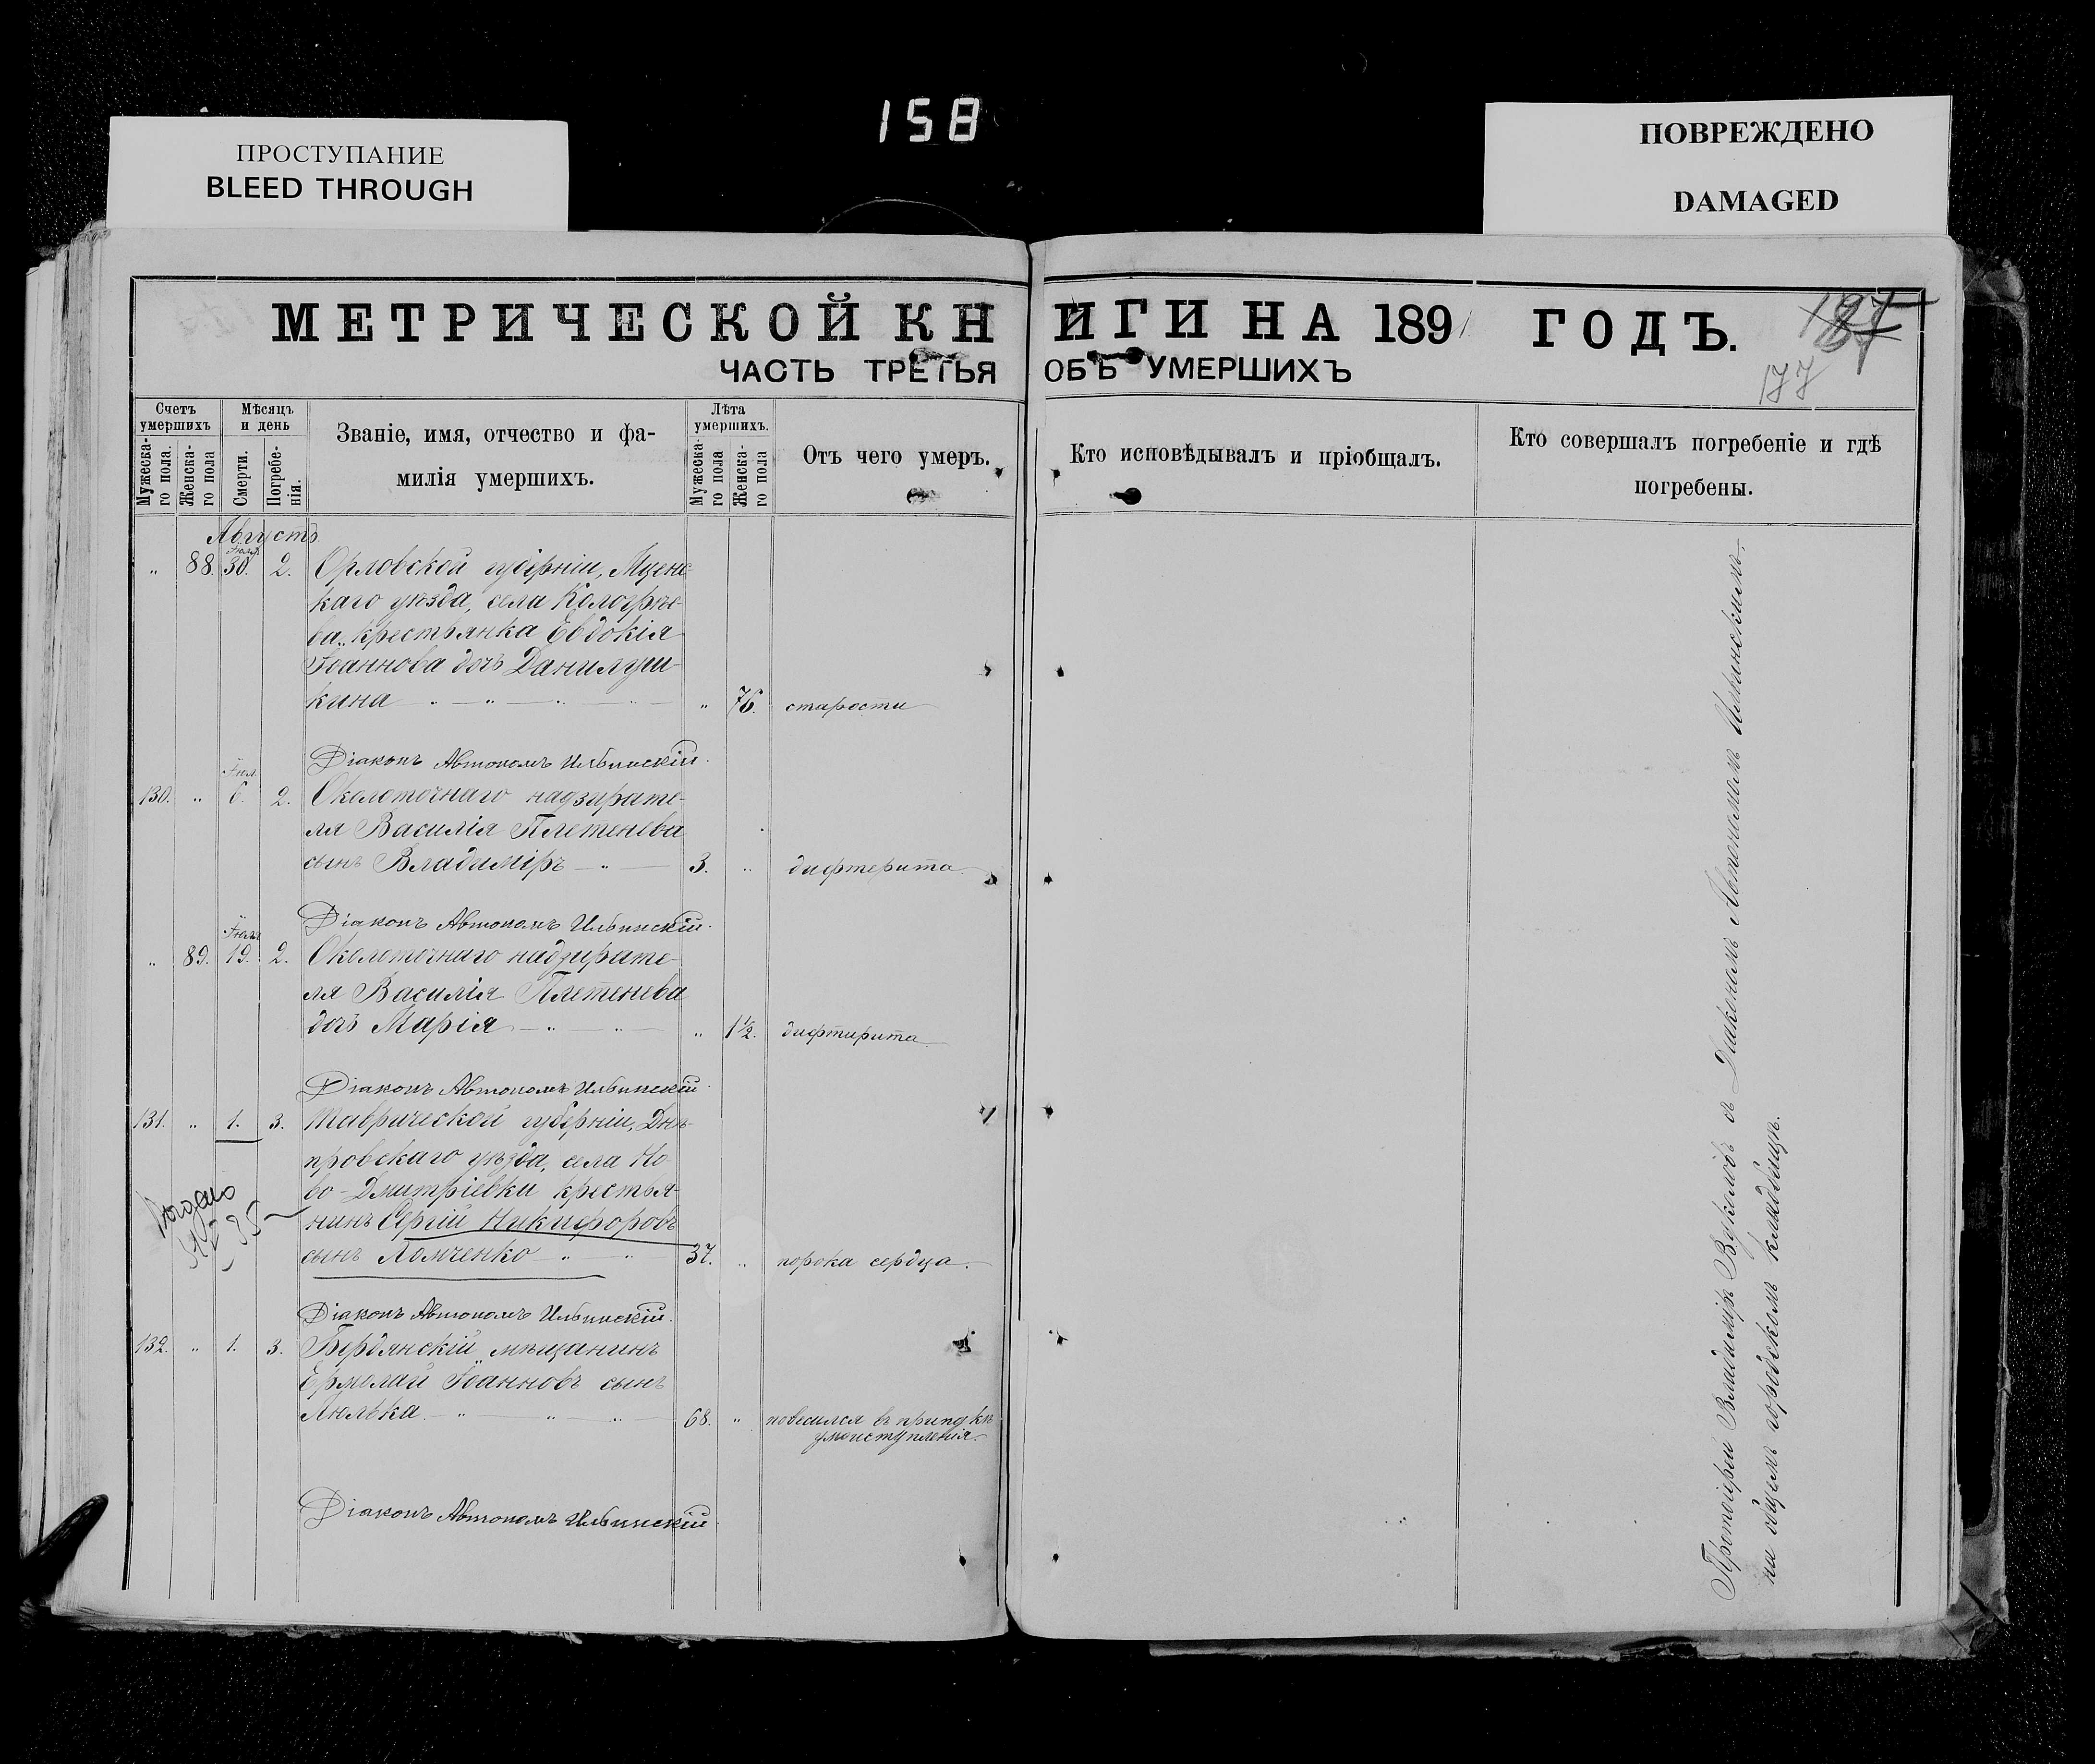 158
ПРОСТУПАНИЕ
BLEED THROUGH
ПОВРЕЖДЕНО
DAMAGED
МЕТРИЧЕСКОЙ КНИГИ НА 1891 ГОДЪ.
187
177
ЧАСТЬ ТРЕТЬЯ ОБЪ УМЕРШИХЪ
Счетъ умершихъ
Мужеска-го пола.
Женска-го пола
Мѣсяцъ и день
Смерти.
Погребе-нія.
Званіе, имя, отчество и фа-
милія умершихъ.
Лѣта умершихъ.
Мужеска-го пола
Женска-го пола
Отъ чего умеръ.
Кто исповѣдывалъ и пріобщалъ.
Кто совершалъ погребеніе и гдѣ
погребены.
Августъ
Іюля
„ 88. 30. 2. Орловской губерніи, Мценс-
каго уѣзда, села Кологрѣе-
ва крестьянка Евдокія
Іоаннова дочь Данилуш-
кина „ 76. старости
Діаконъ Автономъ Ильинскій.
Іюл.
130. „ 6. 2. Околоточнаго надзирате-
ля Василія Плетенева
сынъ Владиміръ 3. „ дифтерита
Діаконъ Автономъ Ильинскій.
Іюля
„ 89. 19. 2. Околоточнаго надзирате-
ля Василія Плетенева
дочь Марія „ 1½. дифтирита
Діаконъ Автономъ Ильинскій.
131. „ 1. 3. Таврической губерніи, Днѣ-
провскаго уѣзда, села Но-
во-Дмитріевки крестья-
нинъ Сергій Никифоровъ
сынъ Ломченко 37. „ порока сердца.
Діаконъ Автономъ Ильинскій.
132. „ 1. 3. Бердянскій мѣщанинъ
Ермолай Іоанновъ сынъ
Люлька 68. „ повесился въ припадкѣ
умоиступленія.
Діаконъ Автономъ Ильинскій
Протоіерей Владиміръ Вуколовъ съ Діакономъ Автономомъ Ильинскимъ
на общемъ городскомъ кладбищѣ.